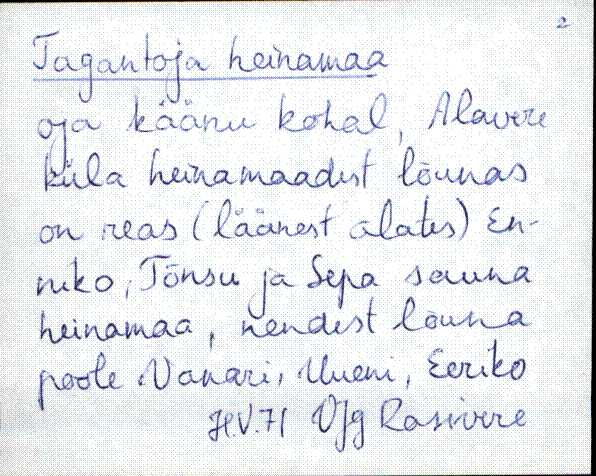 2
Tagantoja heinamaa
oja käänu kohal, Alavere
küla heinamaadest lõunas
on reas (läänest alates) En-
niko, Tõnsu ja Sepa sauna
heinamaa, nendest lõuna
poole Vanari, Uueni, Eeriko
H.V. 71 VJg Rasivere